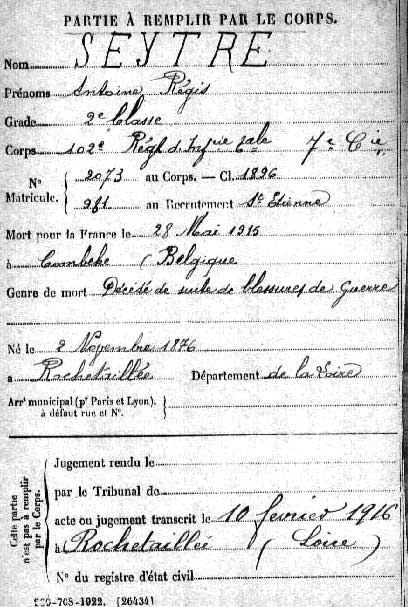 PARTIE À REMPLIR PAR LE CORPS.
Nom SEYTRE
Prénoms Antoine Régis
Grade 2e Classe
Corps 102e Régt d'Infrie tale 7e Cie
N° Matricule. { 2073 au Corps. — Cl. 1896
981 au Recrutement St Etienne
Mort pour la France le 28 Mai 1915
à Combeke (Belgique
Genre de mort Décédé de suite de blessures de Guerre
Né le 2 Novembre 1876
à Rochetaillée Département de la Loire
Arrt municipal (pr Paris et Lyon), à défaut rue et N°. {
Cette partie n'est pas à remplir par le Corps.
Jugement rendu le
par le Tribunal de
acte ou jugement transcrit le 10 février 1916
à Rochetaillée (Loire)
N° du registre d'état civil
-708-1922. [26434]